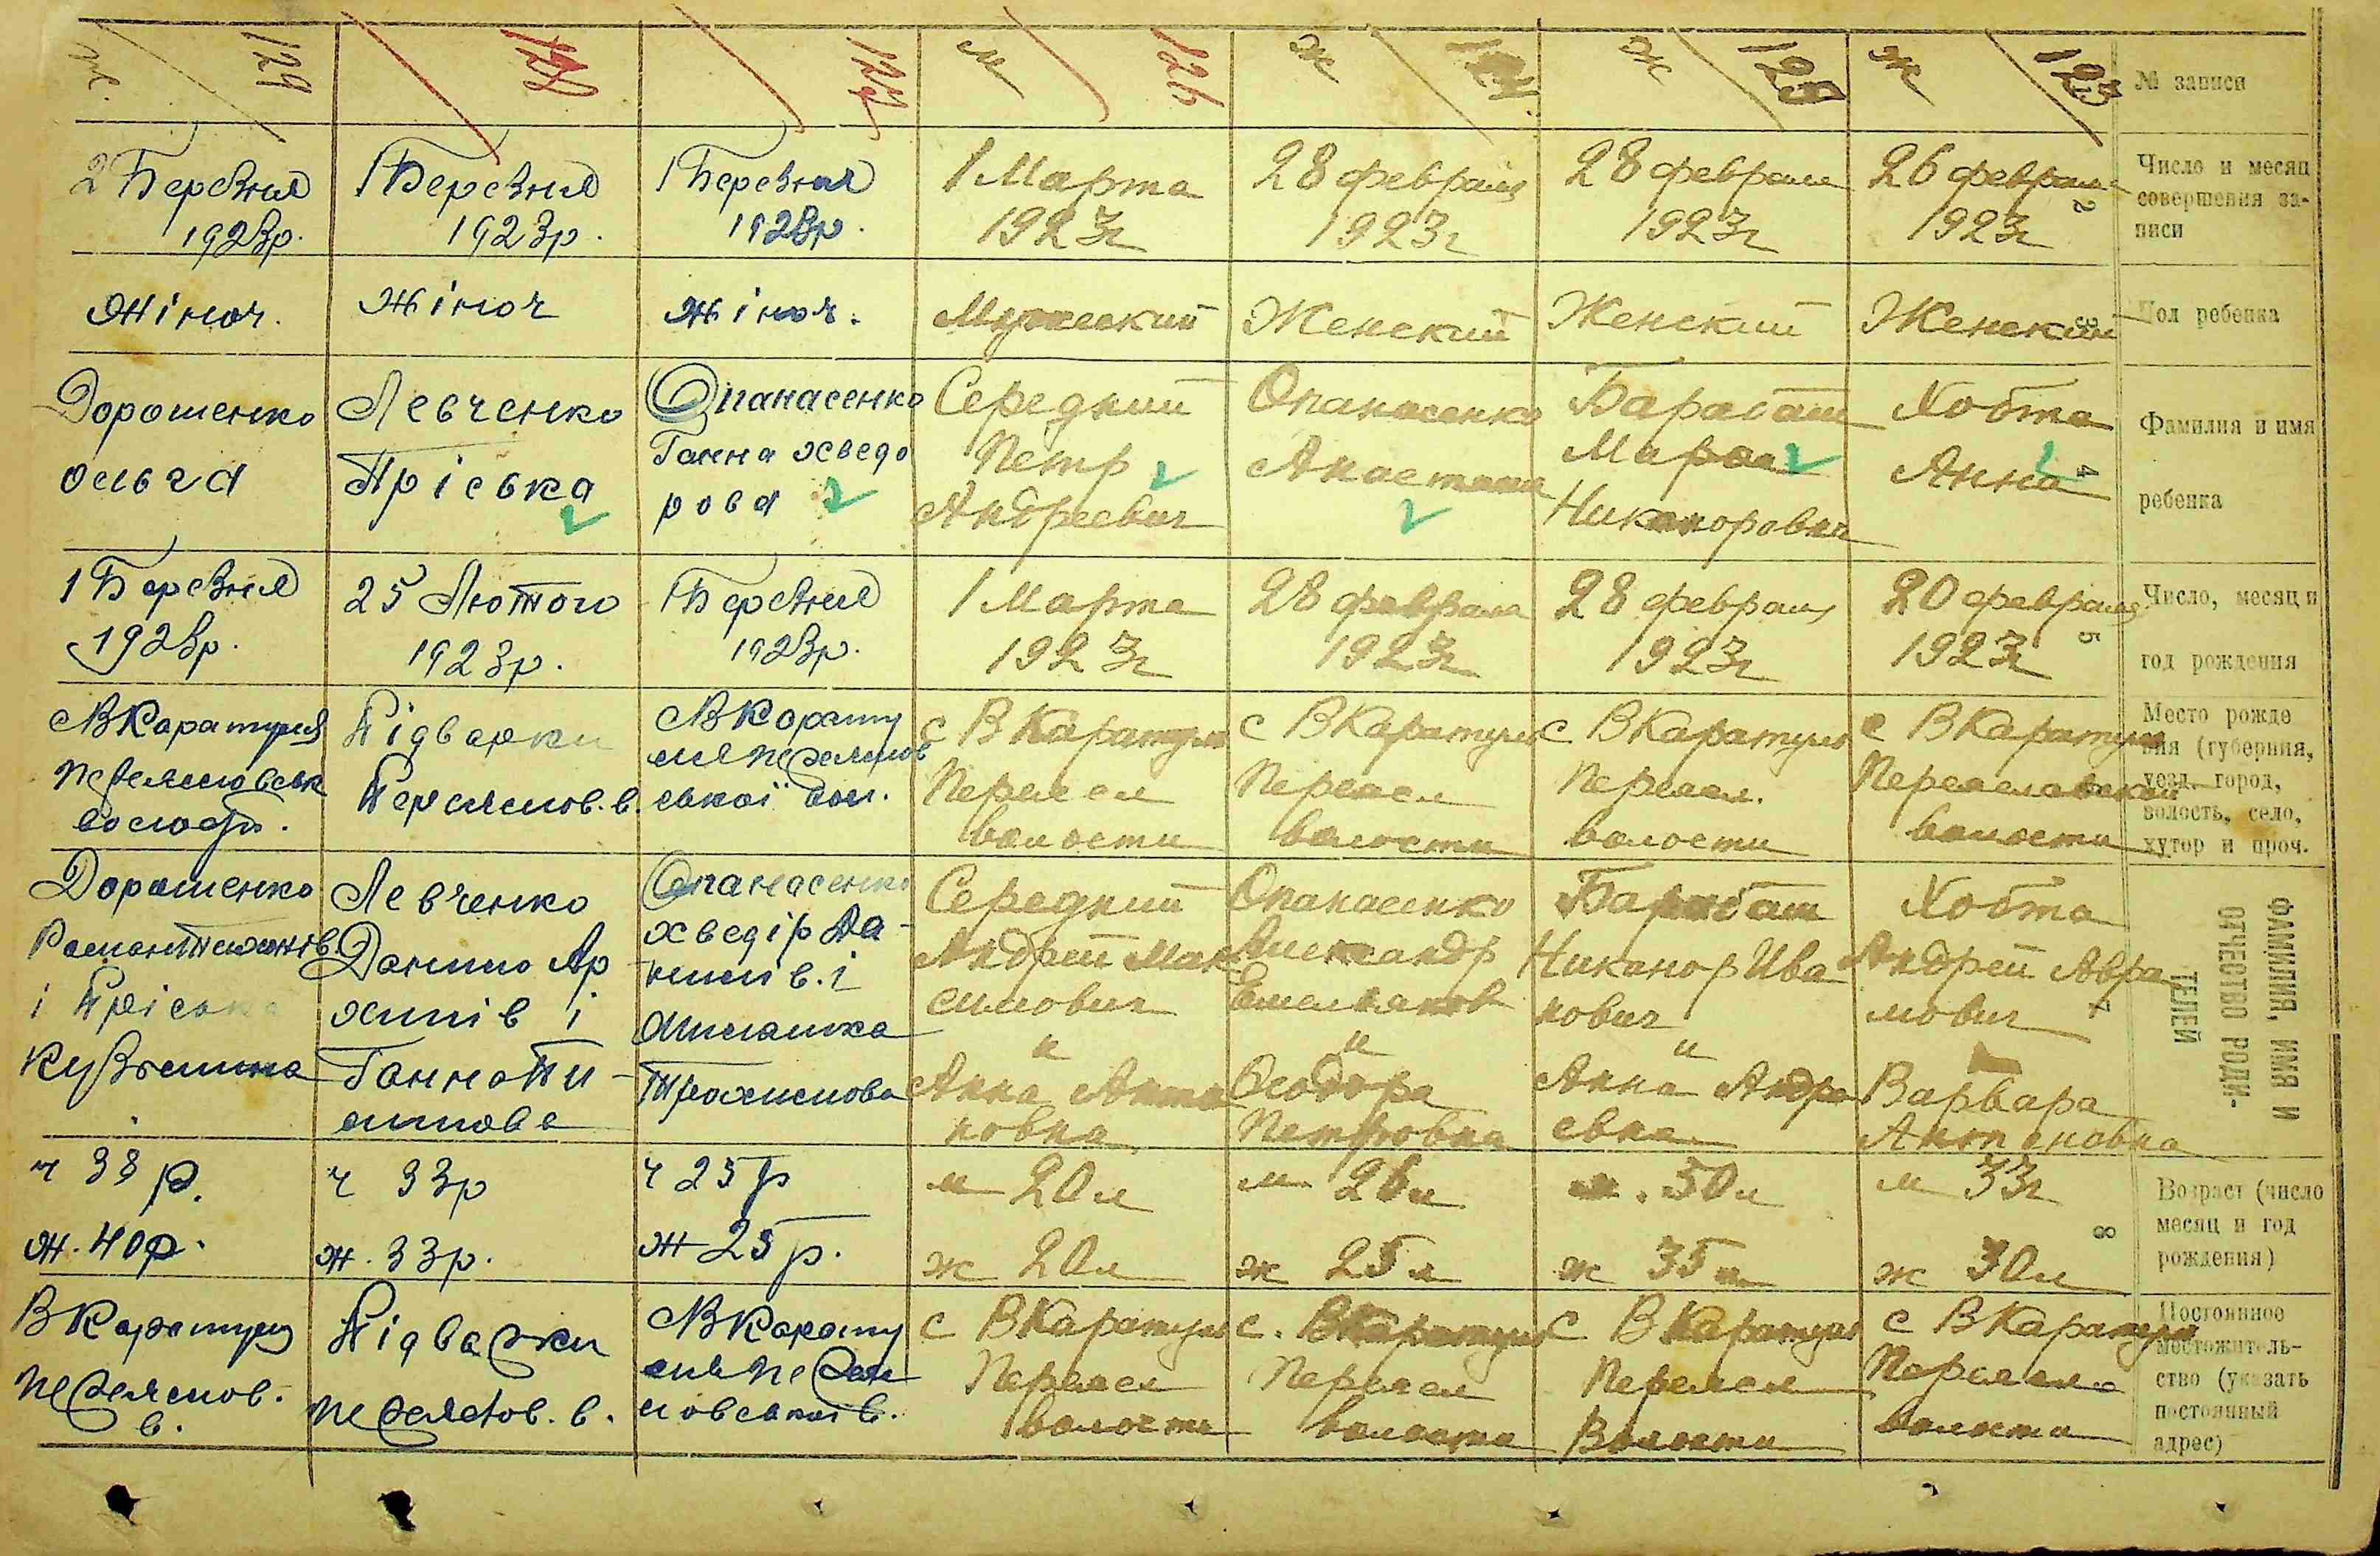 ж. 129
128
127
м 126
ж
ж 125
ж 123
№ записи
2 Березня
1923р.
1 Березня
1923р.
1 Березня
1923р.
1 Марта
1923г
28 февраля
1923г
28 февраля
1923г
26 февраля
1923г
Число и месяц
совершения за-
писи
2
жіноч.
жіноч
жіноч.
Мужеский
Женский
Женский
Женский
Пол ребенка
3
Дорошенко
Ольга
Левченко
Пріська
Опанасенко
Ганна Хведо
рова
Середний
Петр
Андреевич
Опанасенко
Анастасия
Барабаш
Мария
Никаноровна
Хобта
Анна
Фамилия и имя
ребенка
4
1 Березня
1923р.
25 Лютого
1923р.
1 Березня
1923р.
1 Марта
1923г
28 февраля
1923г
28 февраля
1923г
20 февраля
1923г
Число, месяц и
год рождения
5
В Каратуля
Переяславськ
волости.
Підварки
Переяслов. в.
В Карату
ля Переяслов
ської вол.
с В Каратули
Переясл
волости
с В Каратули
Переясл
волости
с В Каратули
Переясл.
волости
с В Каратули
Переяславской
волости
Место рожде
ния (губерния,
уезд, город,
волость, село,
хутор и проч.
Дорошенко
Роман
і Пріська
Кузьмина
Левченко
Данило Ар
хипів і
Ганна Пи-
липова
Опанасенко
Хведір Да-
нилів. і
Милашка
Трохимова
Середний
Андрей Мак
симович
и
Анна Анто
новна
Опанасенко
Александр
Емельянов
и
Феодора
Петровна
Барабаш
Никанор Ива
нович
и
Анна Андре
евна
Хобта
Андрей Авра
мович
Варвара
ФАМИЛИЯ, ИМЯ И
ОТЧЕСТВО РОДИ-
ТЕЛЕЙ
7
ч 38 р.
ж. 40р.
ч 33р
ж. 33р.
ч 25 р
ж 25 р.
м 20л
ж 20л
м 26л
ж 25л
м. 50л
ж 35л
м 33г
ж 30л
Возраст (число
месяц и год
рождения)
8
В Каратули
Переяслов.
в.
Підварки
Переяслов. в.
В Карату
ля Переяс
ловської в.
с В Каратули
Переясл
волости
с. В Каратули
Переясл
волости
с В Каратули
Переясл
Волости
с В Каратули
Переясл
волости
Постоянное
местожитель-
ство (указать
постоянный
адрес)